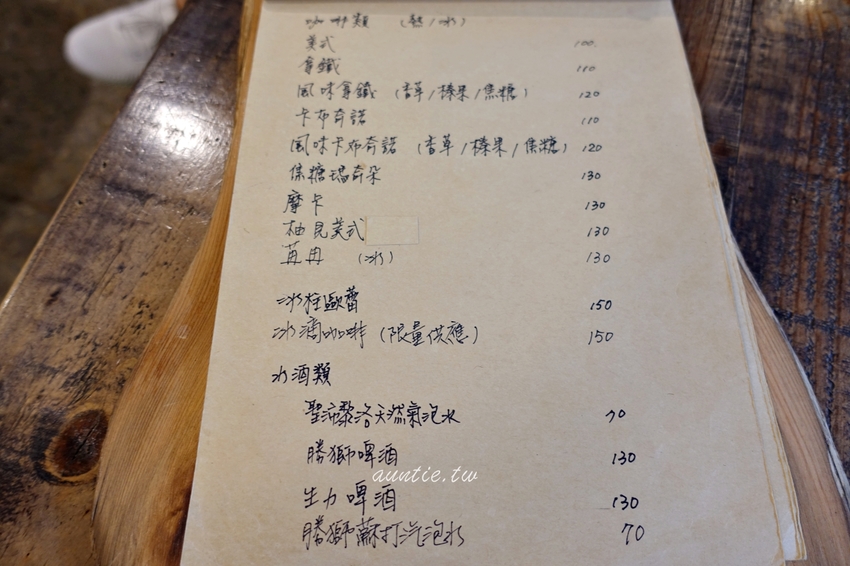 咖啡類 (熱/冰)
美式 100.
拿鐵 110
風味拿鐵 (香草/榛果/焦糖) 120
卡布奇諾 110
風味卡布奇諾 (香草/榛果/焦糖) 120
焦糖瑪奇朵 130
摩卡 130
柚見美式 130
苒冉 (冰) 130
冰柱歐蕾 150
冰滴咖啡 (限量供應) 150
水酒類
聖沛黎洛天然氣泡水 70
勝獅啤酒 130
auntie.tw
生力啤酒 130
勝獅蘇打汽泡水 70